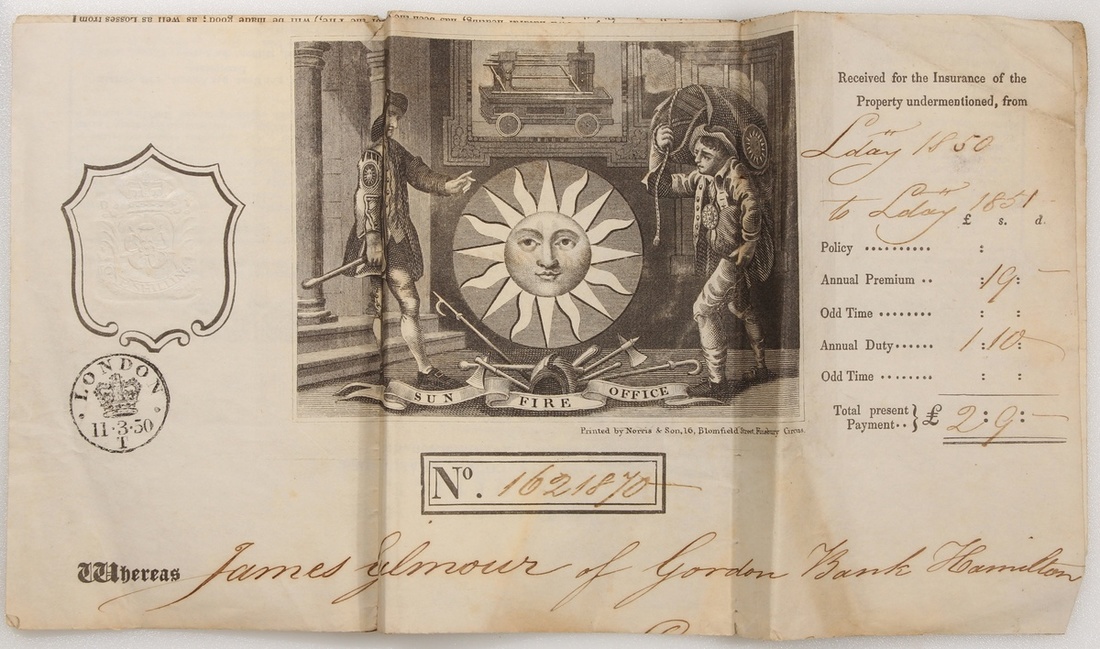 good; as well as Losses from
LONDON
11·3·50
T
SUN FIRE OFFICE
Printed by Norris & Son, 16, Blomfield Street, Finsbury Circus.
Received for the Insurance of the
Property undermentioned, from
Lday 1850
to Lday 1851
£ s. d.
Policy .......... :
Annual Premium .. : 19 : —
Odd Time ........ : :
Annual Duty ...... 1 : 10 : —
Odd Time ........ : :
Total present
Payment.. } £ 2 : 9 : —
No. 1621870
Whereas James Gilmour of Gordon Bank Hamilton